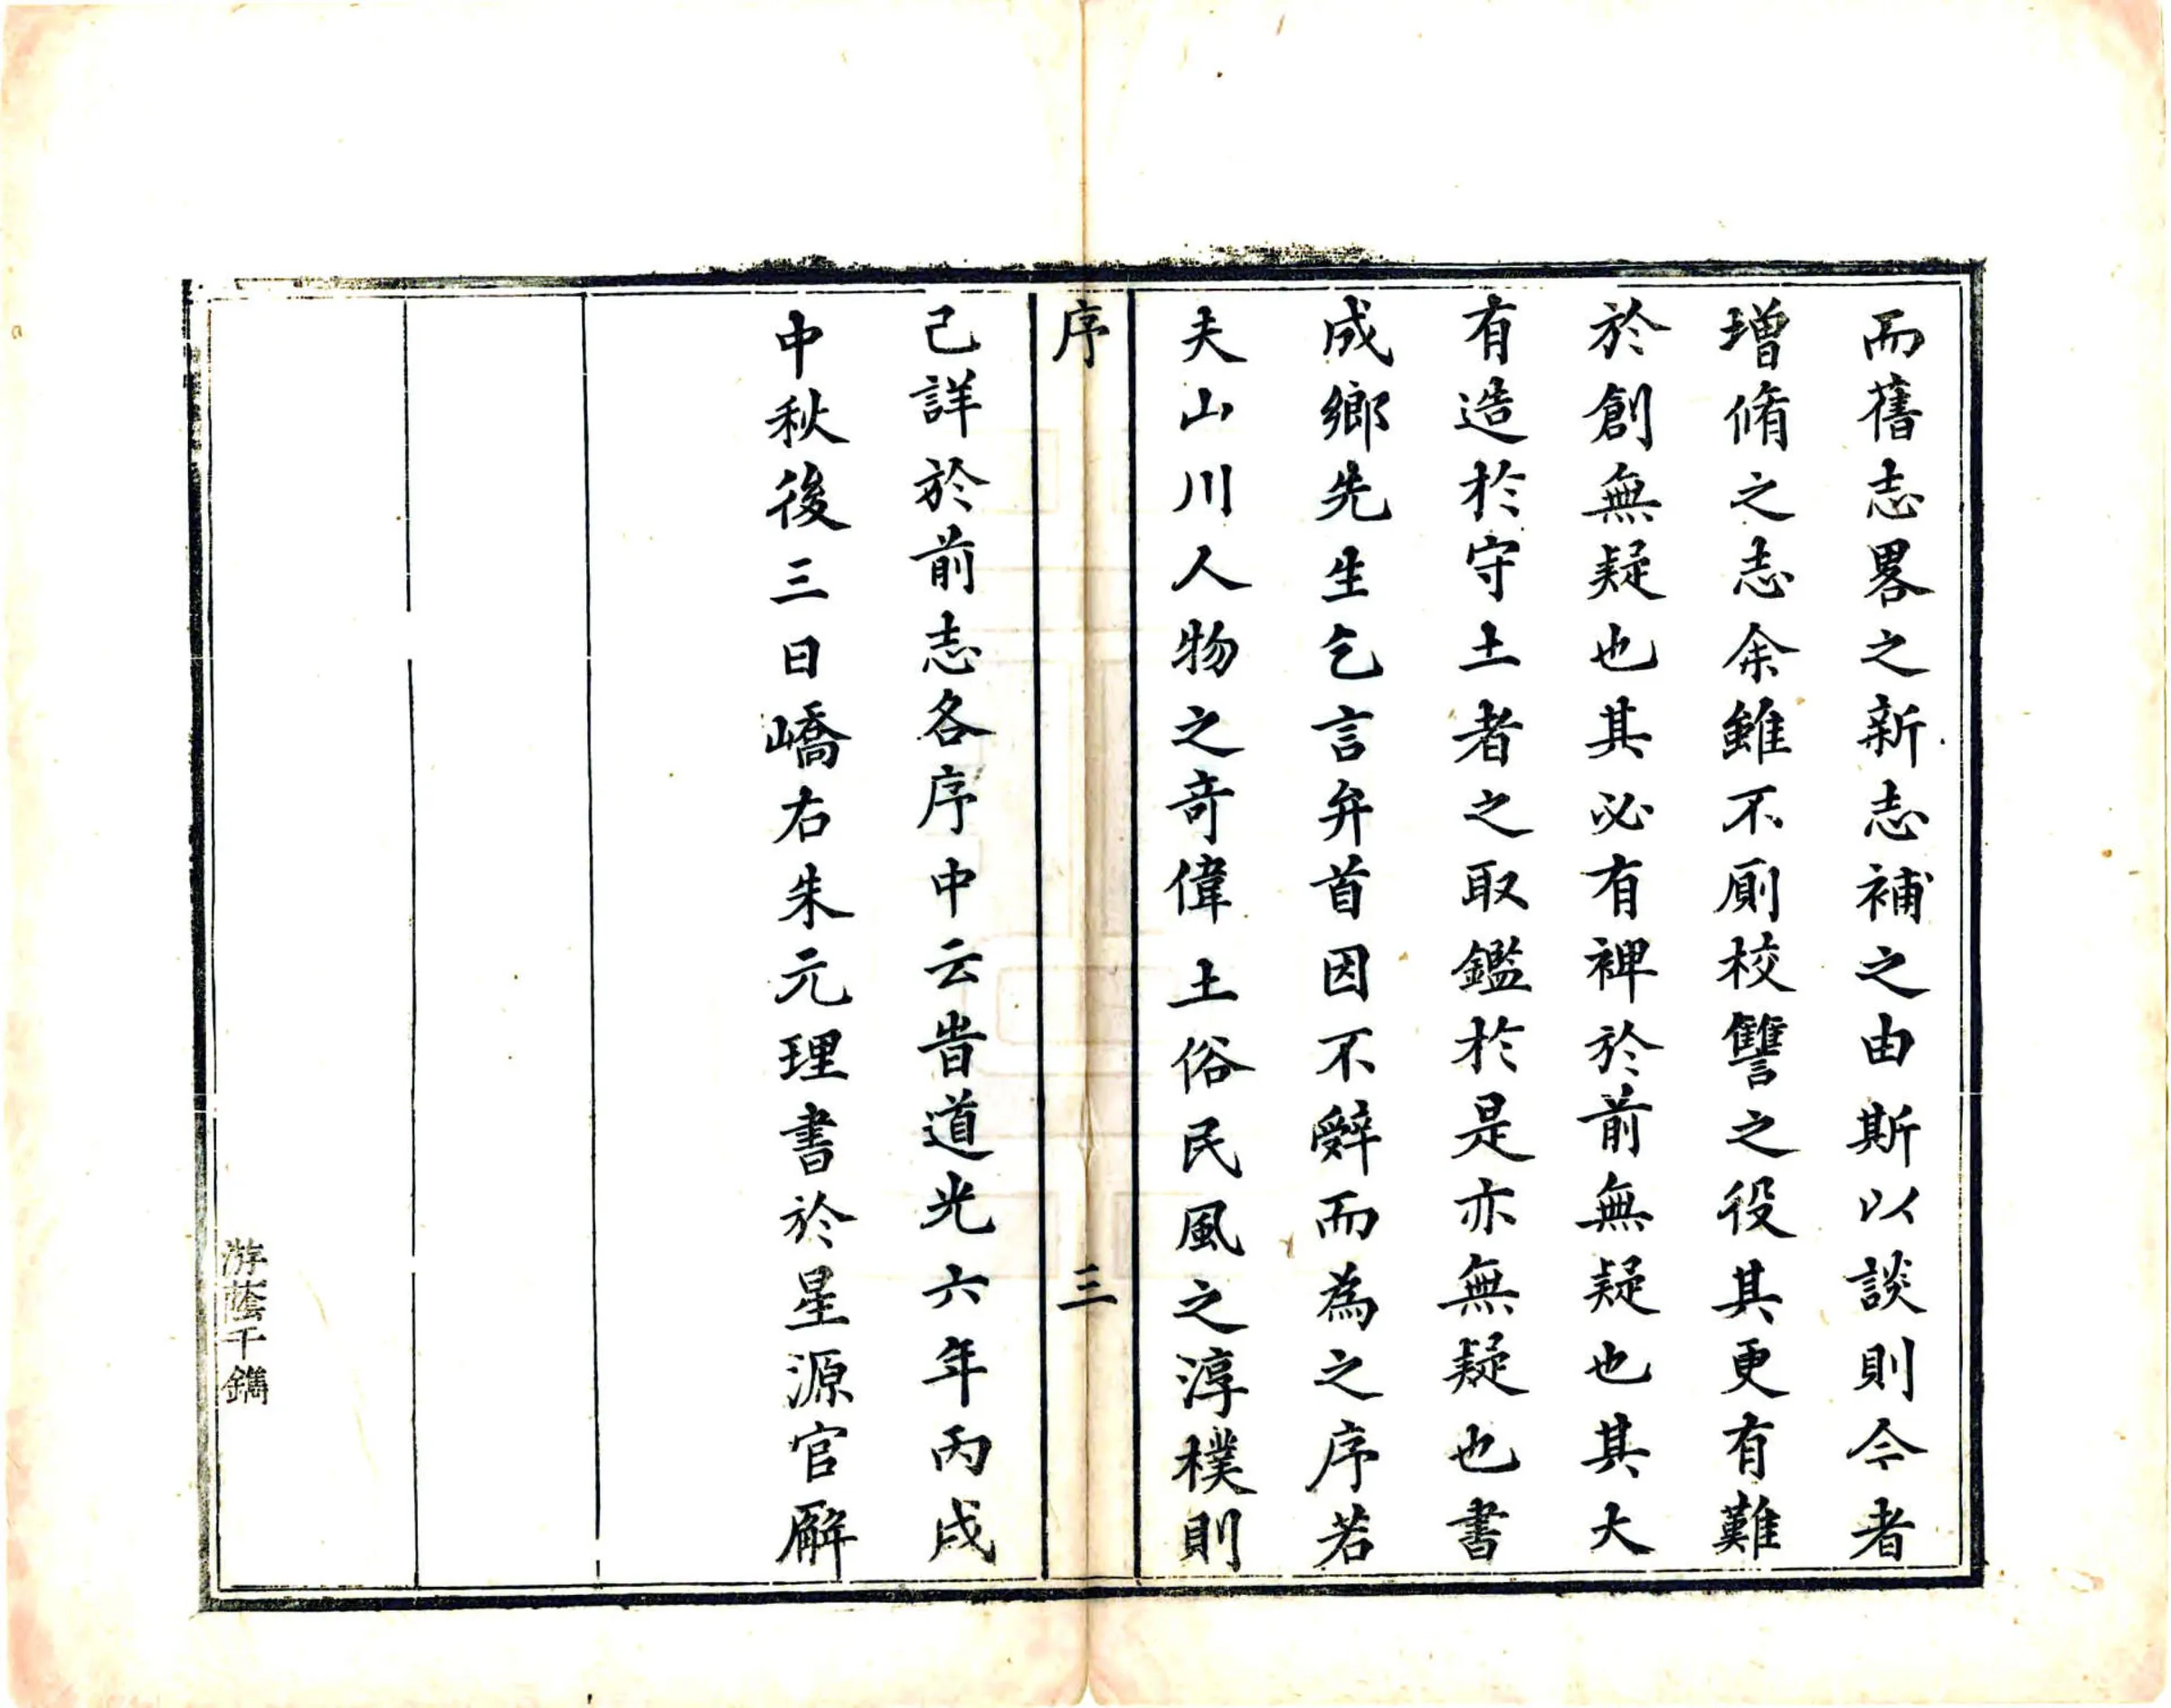 而舊志畧之新志補之由斯以談則今者
增脩之志余雖不廁校讐之役其更有難
於創無疑也其必有裨於前無疑也其大
有造於守土者之取鑑於是亦無疑也書
成鄉先生乞言弁首因不辤而為之序若
夫山川人物之奇偉土俗民風之淳樸則
序 三
已詳於前志各序中云旹道光六年丙戌
中秋後三日嶠右朱元理書於星源官廨
游蔭千鐫